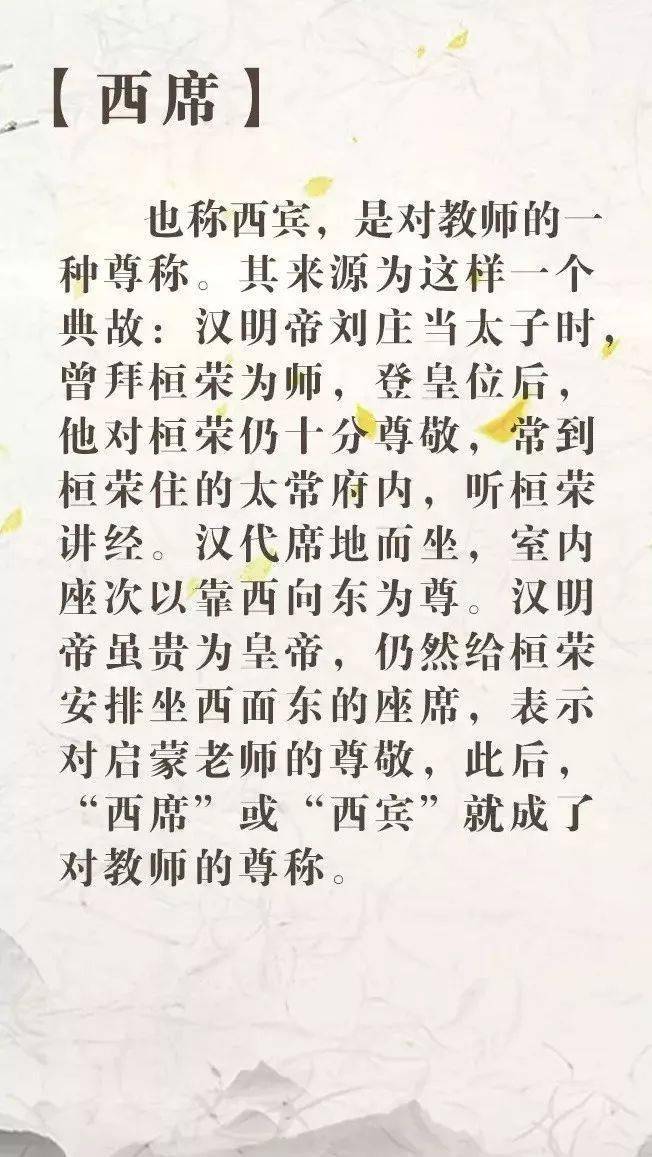 【西席】
也称西宾，是对教师的一
种尊称。其来源为这样一个
典故：汉明帝刘庄当太子时，
曾拜桓荣为师，登皇位后，
他对桓荣仍十分尊敬，常到
桓荣住的太常府内，听桓荣
讲经。汉代席地而坐，室内
座次以靠西向东为尊。汉明
帝虽贵为皇帝，仍然给桓荣
安排坐西面东的座席，表示
对启蒙老师的尊敬，此后，
“西席”或“西宾”就成了
对教师的尊称。